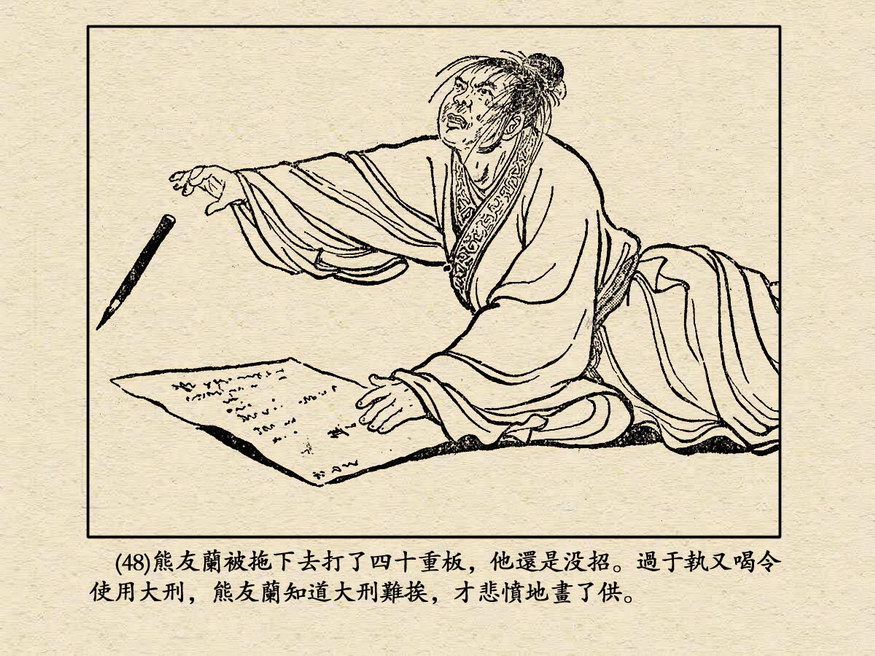 (48)熊友蘭被拖下去打了四十重板，他還是没招。過于執又喝令
使用大刑，熊友蘭知道大刑難挨，才悲憤地畫了供。